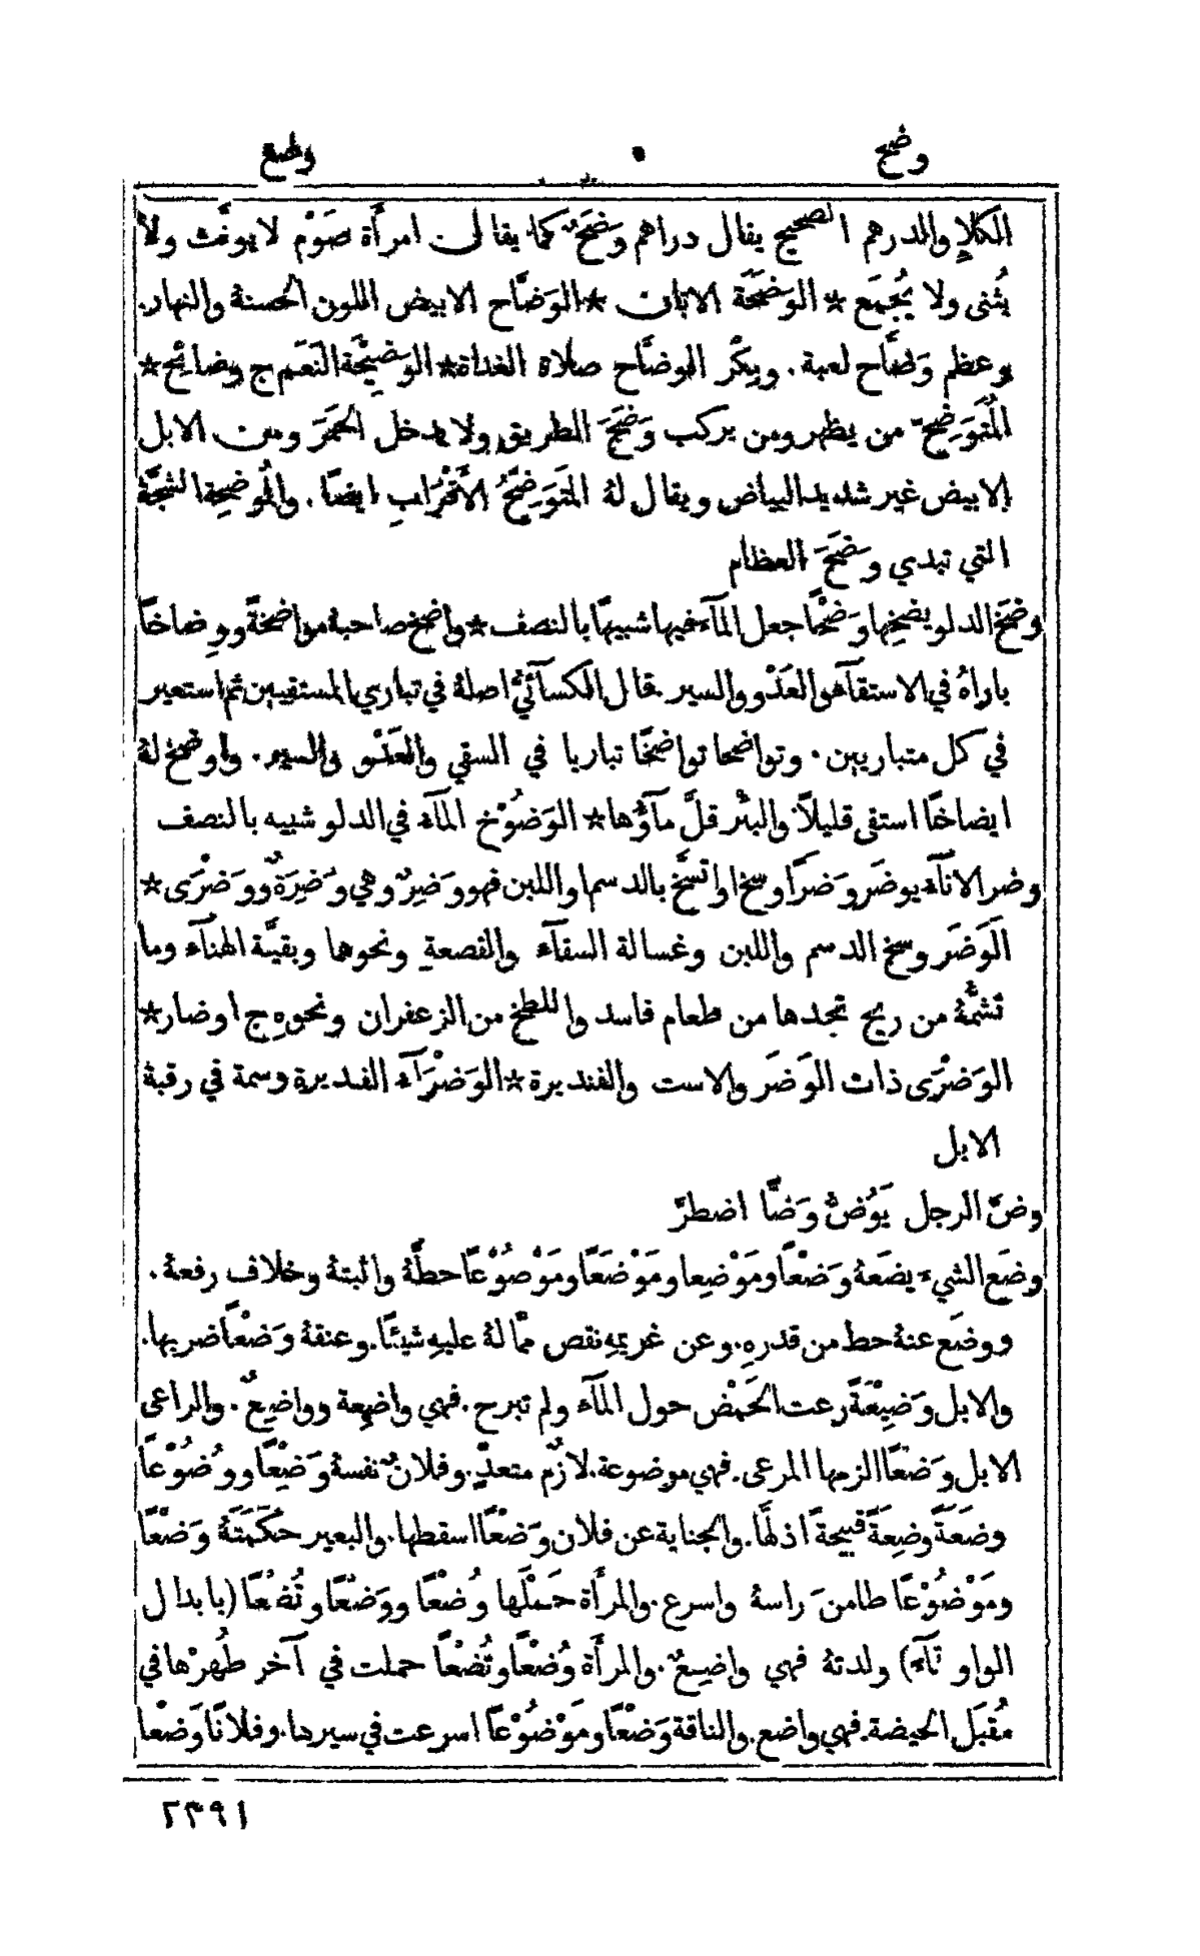 وضح • وضع
الكلإِ والدرهم الصحيح يقال دراهم وَضَحٌ كما يقال امرأَة صَوْم لا يونَّث ولا
يُثنى ولا يُجمَع * الوَضَحَة الاتان * الوَضَّاح الابيض اللون الحسنهُ والنهار.
وعظم وَضَّاح لعبة. وبِكْر الوضَّاح صلاة الغداة * الوَضِيْحَة النَعَم ج وضائح *
المُتَوَضِّح من يظهر ومن يركب وَضَحَ الطريق ولا يدخل الخَمَرَ ومن الابل
الابيض غير شديد البياض ويقال لهُ المتَوَضِّحُ الأَقْرَابِ ايضًا. والمُوضِحة الشجَّة
التي تبدي وَضَحَ العظام
وضَخ الدلو يضخها وَضْخًا جعل المآء فيها شبيهًا بالنصف * واضخ صاحبهُ مواضخةً ووِضاخًا
باراهُ في الاستقآء والعَدْو والسير قال الكسآئيُّ اصلهُ في تباري المستقيين ثم استعير
في كل متباريين. وتواضخا تواضخًا تباريا في السقي والعَدْو والسير. واوضخ لهُ
ايضاخًا استقى قليلاً والبئر قلَّ مآؤُها * الوَضُوْخ المآء في الدلو شبيه بالنصف
وضر الانآء يوضَر وَضَرًا وسخ او اتسَّخ بالدسم او اللبن فهو وَضِرٌ وهي وَضِرَةٌ ووَضْرَى *
الوَضَر وسخ الدسم واللبن وغسالة السقآء والقصعةِ ونحوها وبقيَّة الهنآء وما
تشمُّهُ من ريح تجدها من طعام فاسد واللطخ من الزعفران ونحوهِ ج اوضار *
الوَضْرَى ذات الوَضَر والاست والفنديرة * الوَضْرَآء الفديرة وسمة في رقبة
الابل
وضَّ الرجل يَوُضُّ وَضًّا اضطرَّ
وضَع الشيء يضَعهُ وَضْعًا ومَوْضِعا ومَوْضَعًا ومَوْضُوْعًا حطَّهُ واثبتهُ وخلاف رفعهُ.
ووضَع عنهُ حط من قدرهِ. وعن غريمهِ نقص ممّا لهُ عليهِ شيئًا. وعنقهُ وَضْعًا ضربها.
والابل وَضِيْعَةً رعت الحَمْض حول المآء ولم تبرح. فهي واضِعة وواضِعٌ. والراعي
الابل وَضْعًا الزمها المرعى. فهي موضوعة. لازم متعدٍّ. وفلانٌ نفسهُ وَضِيْعًا ووُضُوْعًا
وضَعَةً وضِعَةً قبيحةً اذلَّها. والجناية عن فلان وَضْعًا اسقطها. والبعير حَكَمَتَهُ وَضْعًا
ومَوْضُوْعًا طامنَ راسهُ واسرع. والمرأَة حَمْلَها وُضْعًا ووَضْعًا وتُضْعًا (بابدال
الواو تآء) ولدتهُ فهي واضِعٌ. والمرأَة وُضْعًا وتُضْعًا حملت في آخر طُهرْها في
مُقبَل الحيضة. فهي واضع. والناقة وَضْعًا ومَوْضُوْعًا اسرعت في سيرها. وفلانًا وَضْعا
٢٢٩١